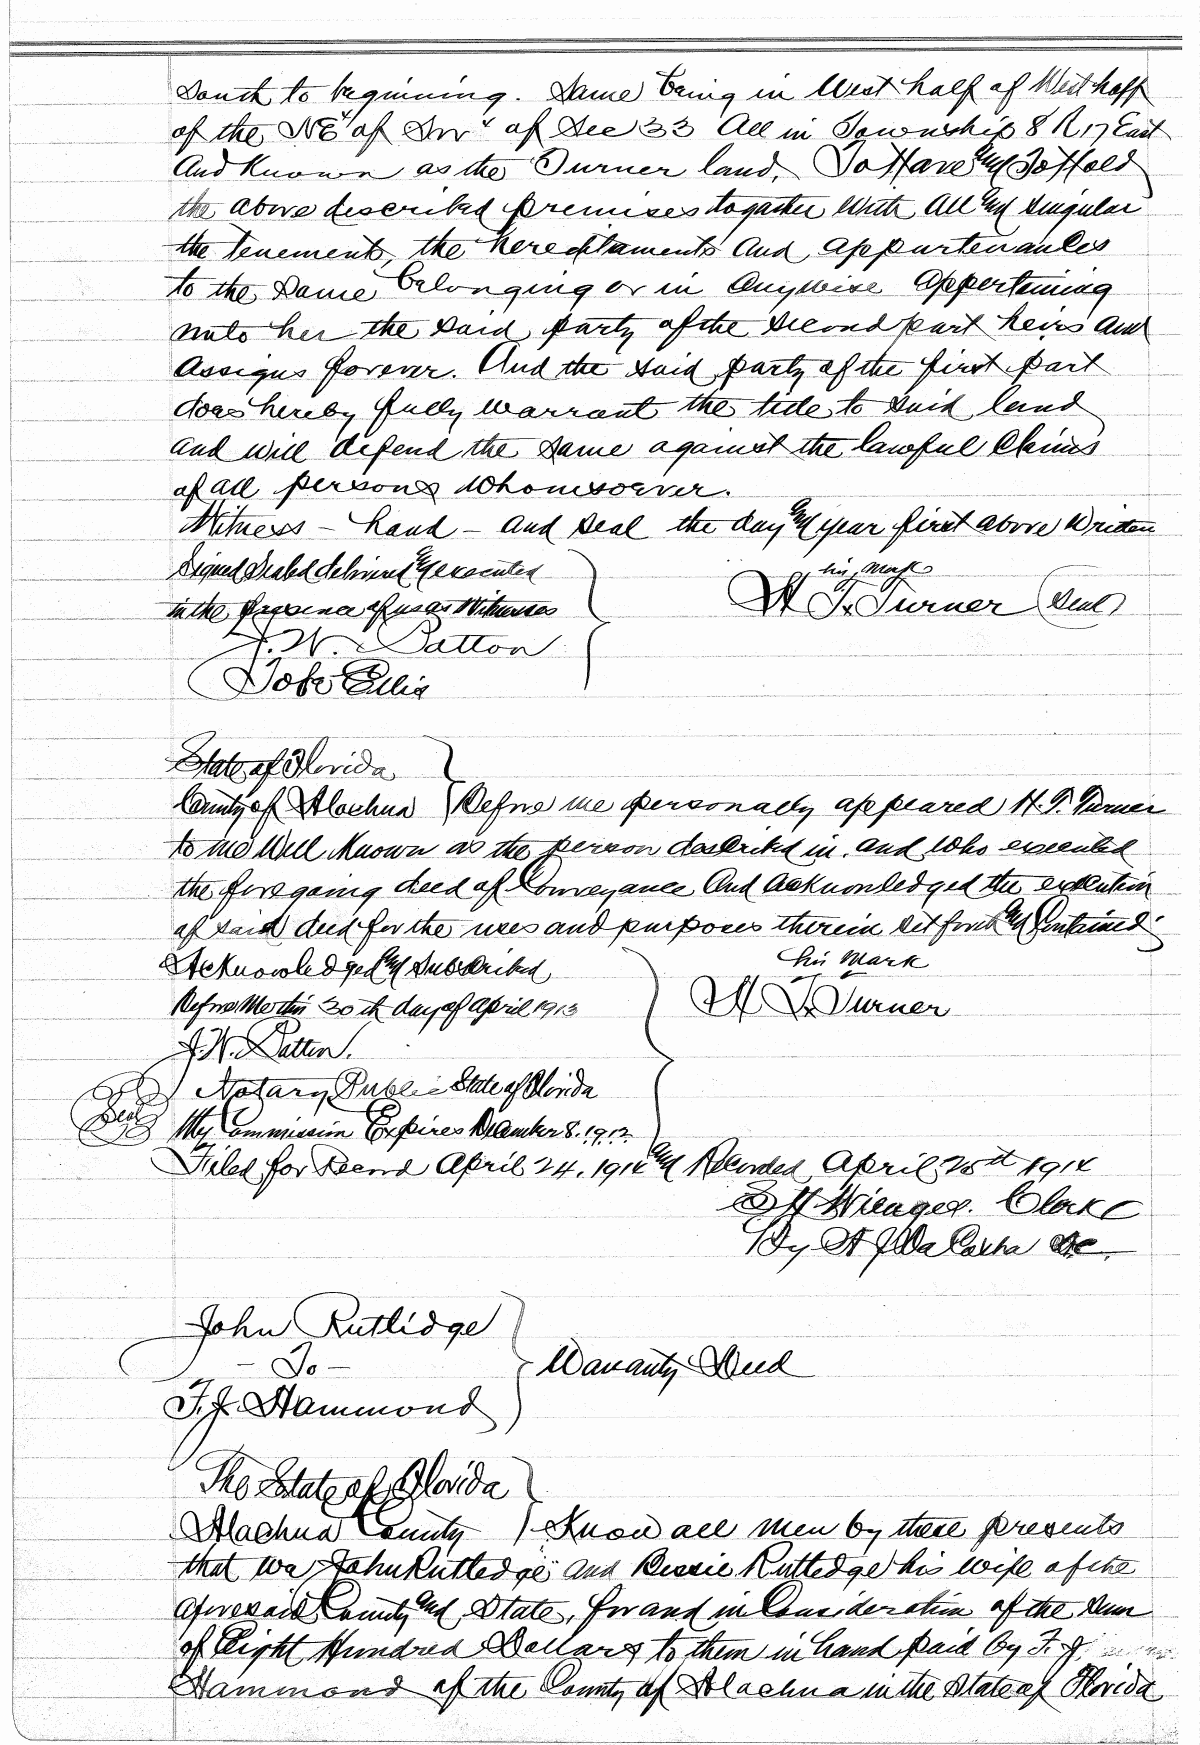 South to beginning. Same being in West half of West half
of the NE¼ of SW¼ of Sec 33 All in Township 8 R 17 East
And Known as the Turner land, To Have and To Hold
the above described premises togather with all and singular
the tenements, the hereditaments and appurtenances
to the same belonging or in anywise appertaining
unto her the said party of the second part heirs and
assigns forever. And the said party of the first part
does hereby fully warrant the title to said land
and will defend the same against the lawful claims
of all persons whomsoever.
Witness – hand – and seal the day and year first above written
Signed Sealed delivered and executed
in the presence of us as Witnesses
his mark
H T. x Turner (Seal)
J. W. Patton
Tobe Ellis
State of Florida
County of Alachua Before me personally appeared H. T. Turner
to me Well Known as the person described in and who executed
the foregoing deed of Conveyance And acknowledged the execution
of said deed for the uses and purposes therein set forth and Contained.
Acknowledged and Subscribed
Before Me this 30th day of April 1913
his Mark
H T. x Turner
J. W. Patton.
Notary Public State of Florida
Seal
My Commission Expires December 8, 1913
Filed for Record April 24. 1914 and Recorded April 25th 1914
S H Wienges. Clerk
By H J DaCosta DC
John Rutlidge
– To –
Warranty Deed
F. J. Hammond
The State of Florida
Alachua County Know all men by these presents
that we John Rutledge and Bessie Rutledge his wife of the
aforesaid County and State, for and in Consideration of the Sum
of Eight Hundred Dollars to them in hand paid by F. J.
Hammond of the County of Alachua in the State of Florida